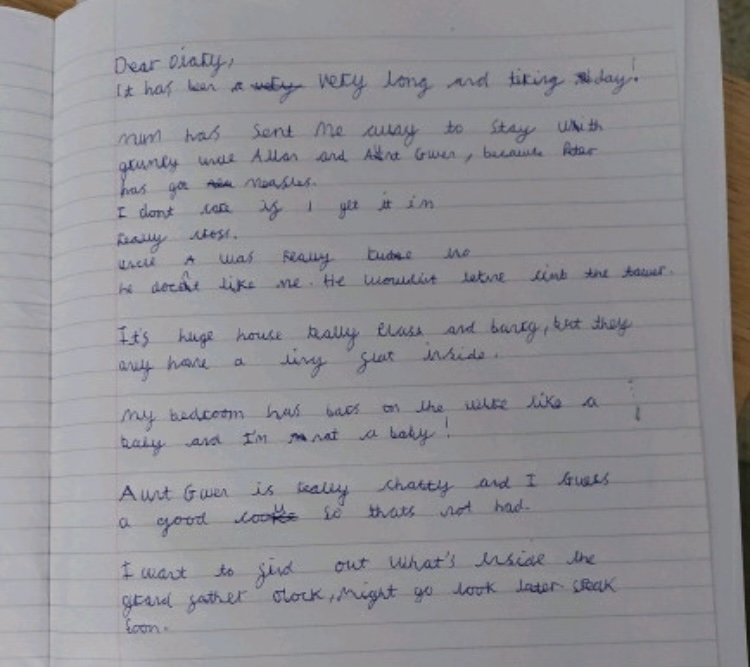 Dear Diary,
It has been a very very long and tiring day!
mum has sent me away to stay with
grumpy uncle Allan and Aunt Gwen, because Peter
has got measles.
I dont care if I get it im
really cross.
uncle A was really rude
he doesn't like me. He wouldn't letme the tower.
It's huge house really and , but they
only have a tiny flat inside.
my bedroom has bars on the like a
baby and I'm not a baby!
Aunt Gwen is really chatty and I Guess
a good so thats not bad.
I want to find out What's inside the
grand father clock, might go look later. speak
soon.